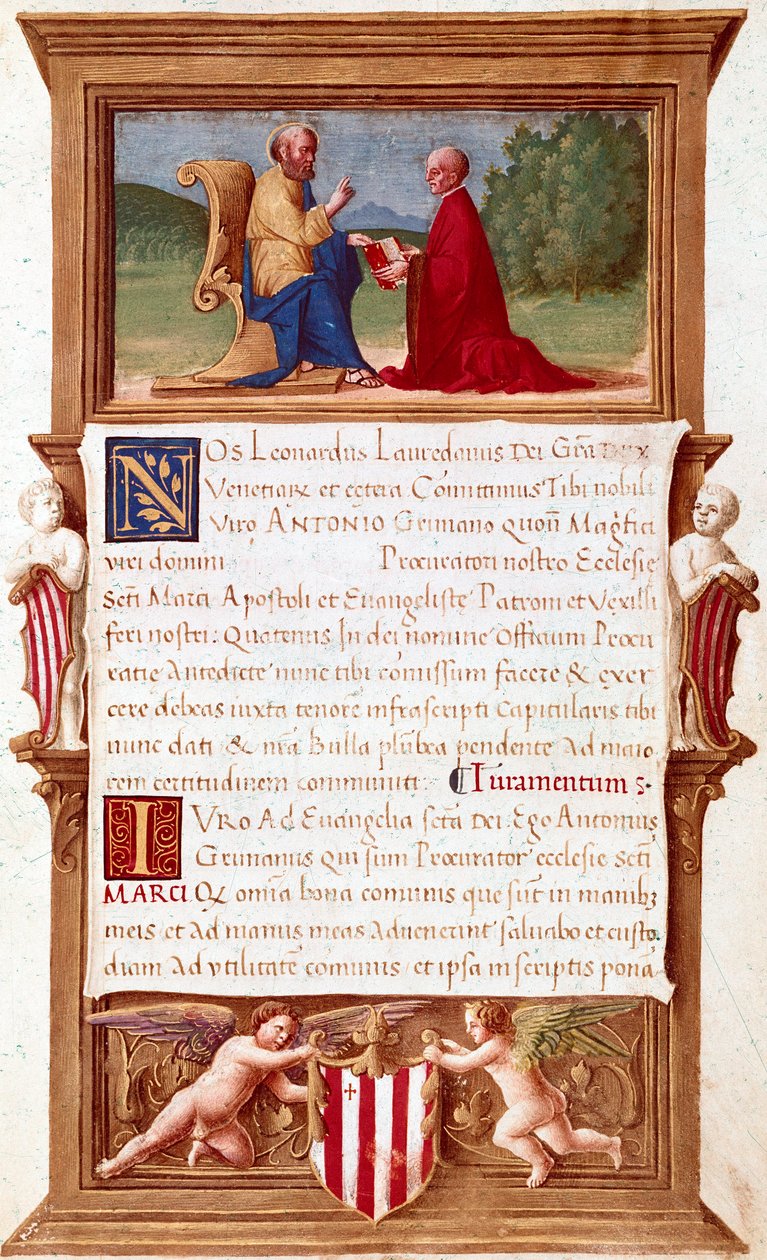 NOS Leonardus Lauredanus Dei Gra͠ Dux
Venetiarꝝ et cetera Comittimus Tibi nobili
Viro ANTONIO Grimano quon͂ Mag͠fici
viri domini Procuratori nostro Ecclesię
Sc͠ti Marci Apostoli et Euangelistę Patroni et Vexilli
feri nostri: Quatenus In dei nomine Officium Procu
ratię Antedictę nunc tibi com͂issum facere & exer
cere debeas iuxta tenorē infrascripti Capitularis tibi
nunc dati & nr͠a Bulla plu͂bea pendente Ad maio
rem certitudinem communiti: ¶ Iuramentum ⸱
IVRO Ad Euangelia sc͠ta Dei: Ego Antonius
Grimanus qui sum Procurator ecclesię Sc͠ti
MARCI Qꝫ omīa bona comunis que su͂t in manibꝫ
meis et Ad manus meas Aduenerint saluabo et custo
diam Ad vtilitatē comunis et ipsa in scriptis ponā